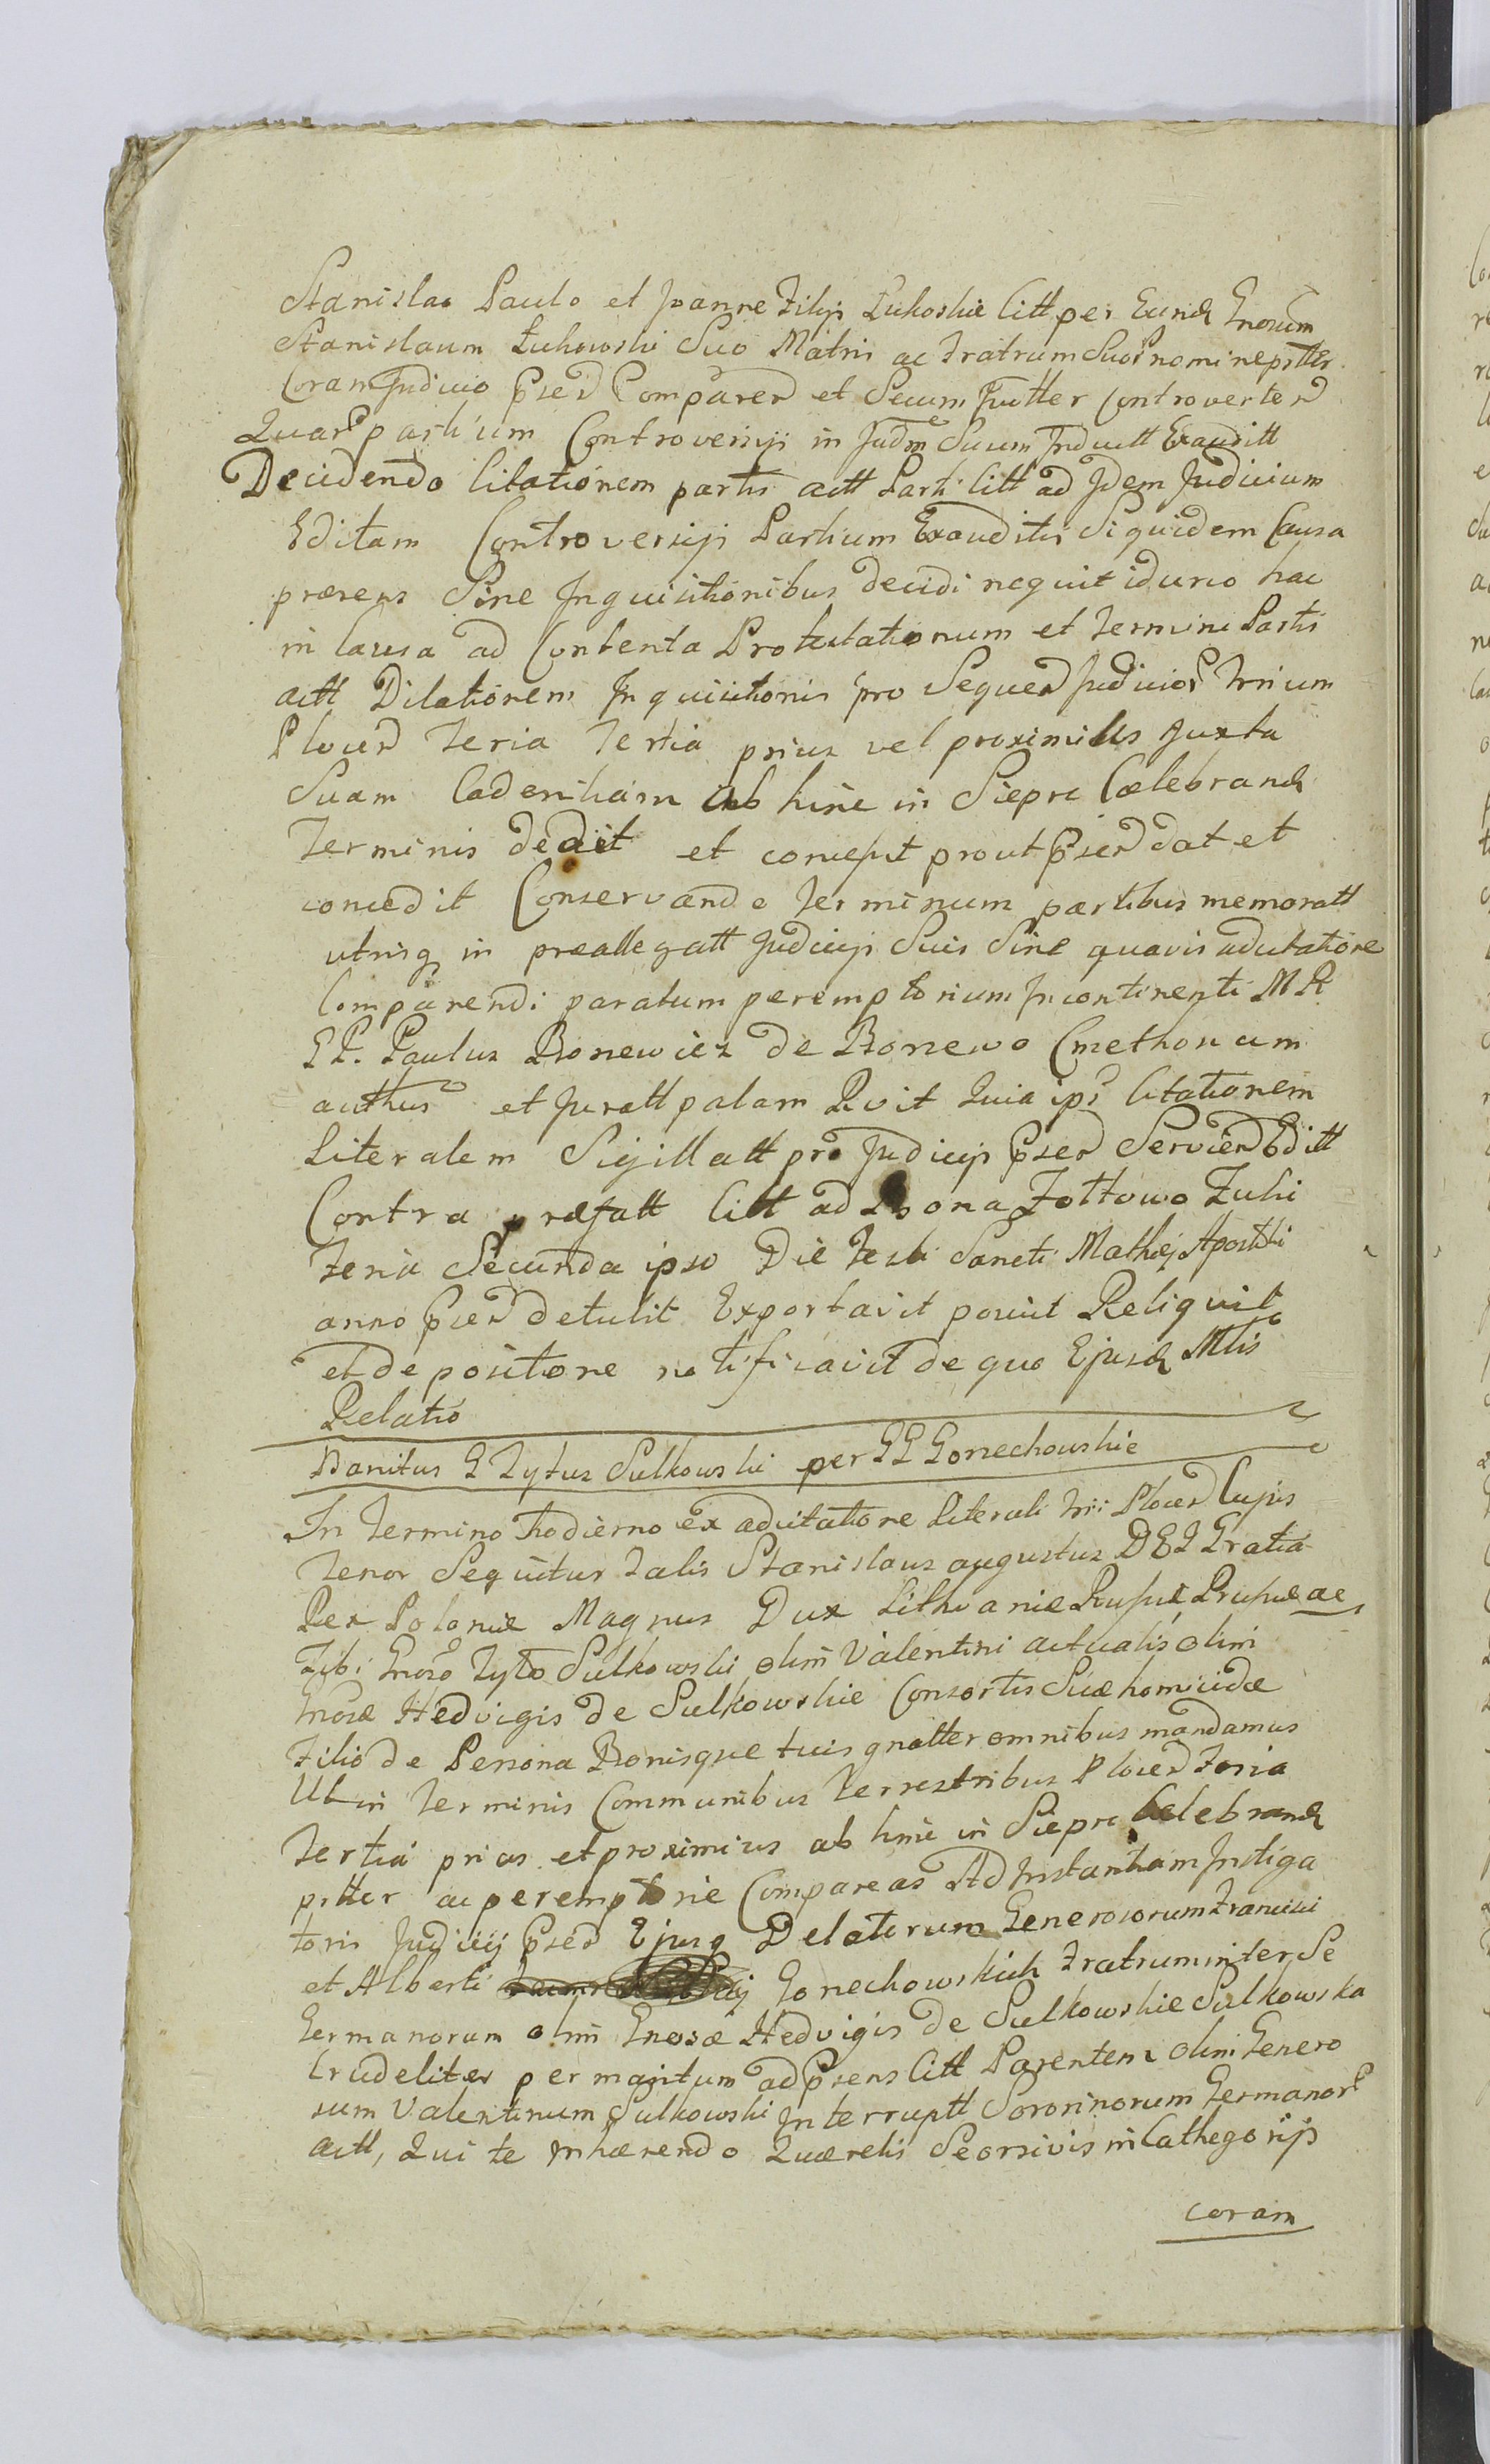 Stanislao Paulo et Joanne Filijs Łukoskie Citt per Eund Gnosum
Stanislaum Łukowski Suo Matris ac Fratrum Suor nomine pstter
Coram Judicio Psed Comparen et Secum Juttер Controverten
Quar partium Controversijs in Judm Suum Indutt Exauditt
Decidendo Citationem partis actt Parti Citt ad Idem Judicium
Editam Controversijs Partium Exauditis Siquidem Causa
præsens Sine Inquisitionibus decidi nequit idurco hac
in Causa ad Contenta Protestationum et Termini Partis
actt Dilationem Inquisitionis pro Sequen Judicior Trium
Plocen Feria Tertia prius vel proximius Juxta
Suam Cadentiam ab hinc in Sieprc Cœlebrand
Terminis dedit et concessit prout Psed dat et
concedit Conservando Terminum partibus memoratt
utrisq in præallegatt Judicijs Suis Sine quavis adcitatione
Comparendi paratum peremptorium Incontinenti M R
G P. Paulus Bonewicz de Bonewo Cmethonum
authus et Juratt palam Rvit Quia ips Citationem
Literalem Sigillatt pro Judicijs Psed Servien Editt
Contra præfatt Citt ad Bona Zołtowo Zuki
Feria Secunda ipso Die Festi Sancti Mathæj Apostoli
anno Psed detulit Exportavit posuit Reliquit
et de positione notificavit de quo Ejusd Mtis
Relatio
Banitus G Tytus Sulkowski per GG Gonechowskie
In Termino hodierno ex adcitatione Literali Trii Plocen Cujus
Tenor Sequitur Talis Stanislaus augustus DEI Gratia
Rex Poloniæ Magnus Dux Lithvaniæ Rusiæ Prusiæ ac
Tibi Gnoso Tyto Sulkowski olim Valentini actualis olim
Gnosæ Hedvigis de Sulkowskie Consortis Suæ homicidæ
Filio de Persona Bonisque tuis gnatter omnibus mandamus
Ut in Terminis Communibus Terrestribus Plocen Feria
Tertia prius et proximius ab hinc in Sieprc Cælebrand
pttter ac peremptorie Compareas Ad Instantiam Instiga
toris Judicij Psed Ejusq Delatorum Generosorum Francisci
et Alberti Gonechowskich Fratrum inter Se
Germanorum olim Gnosæ Hedvigis de Sulkowskie Sulkowska
Crudeliter per maritum ad Psens Citt Parentem olim Genero
sum Valentinum Sulkowski Interruptt Sororinorum Germanor
actt, Qui te Inhærendo Quærelis Seorsivis in Cathegorijs
coram